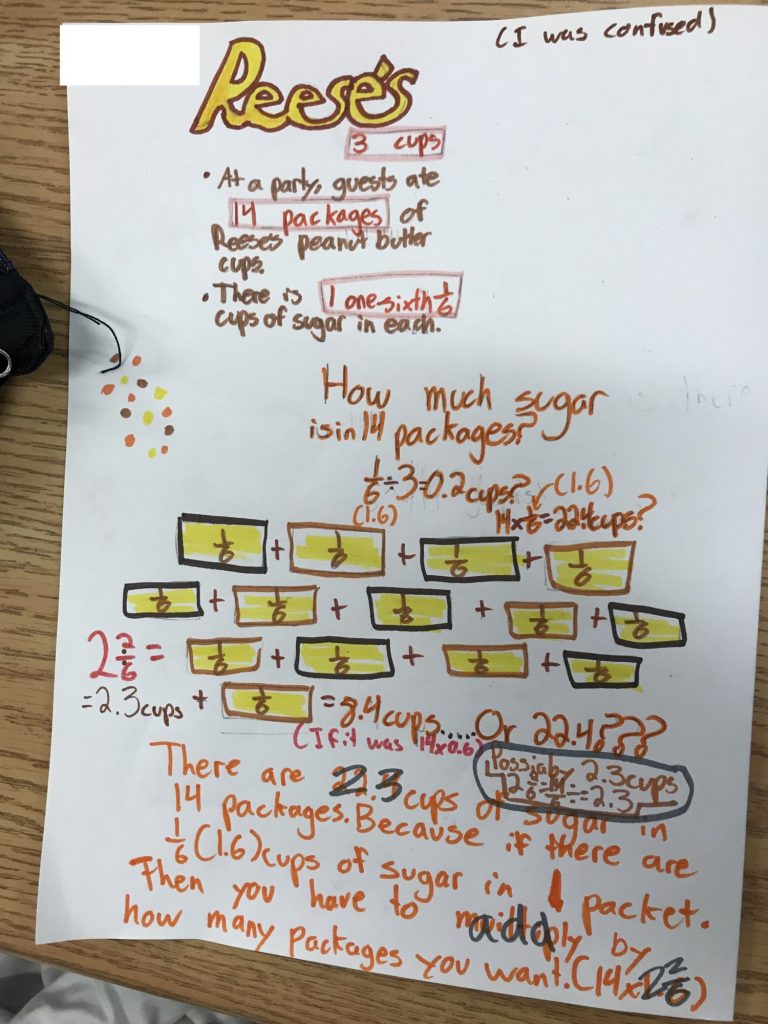 (I was confused)
Reese's
3 cups
• At a party, guests ate
14 packages of
Reese's peanut butter
cups.
• There is 1 one-sixth 1/6
cups of sugar in each.
How much sugar is there
is in 14 packages?
1/6 ÷ 3 = 0.2 cups? (1.6)
(1.6) 14 x 1/6 = 22.4 cups?
1/6 + 1/6 + 1/6 + 1/6
1/6 + 1/6 + 1/6 + 1/6 + 1/6
2 2/6 = 1/6 + 1/6 + 1/6 + 1/6
= 2.3 cups + 1/6 = 8.4 cups..... Or 22.4???
(If it was 14x0.6)
Possibly 2.3 cups
= 2.3
There are 2.3 cups of sugar in
14 packages. Because if there are
1/6 (1.6) cups of sugar in 1 packet.
Then you have to add by
how many packages you want. (14x 2 2/6)